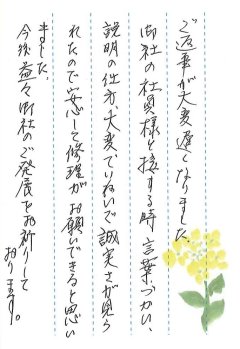 ご返事が大変遅くなりました。
御社の社員様と接する時、言葉づかい、
説明の仕方、大変ていねいで誠実さが見ら
れたので安心して修理がお願いできると思い
ました。
今後益々御社のご発展をお祈りして
おります。